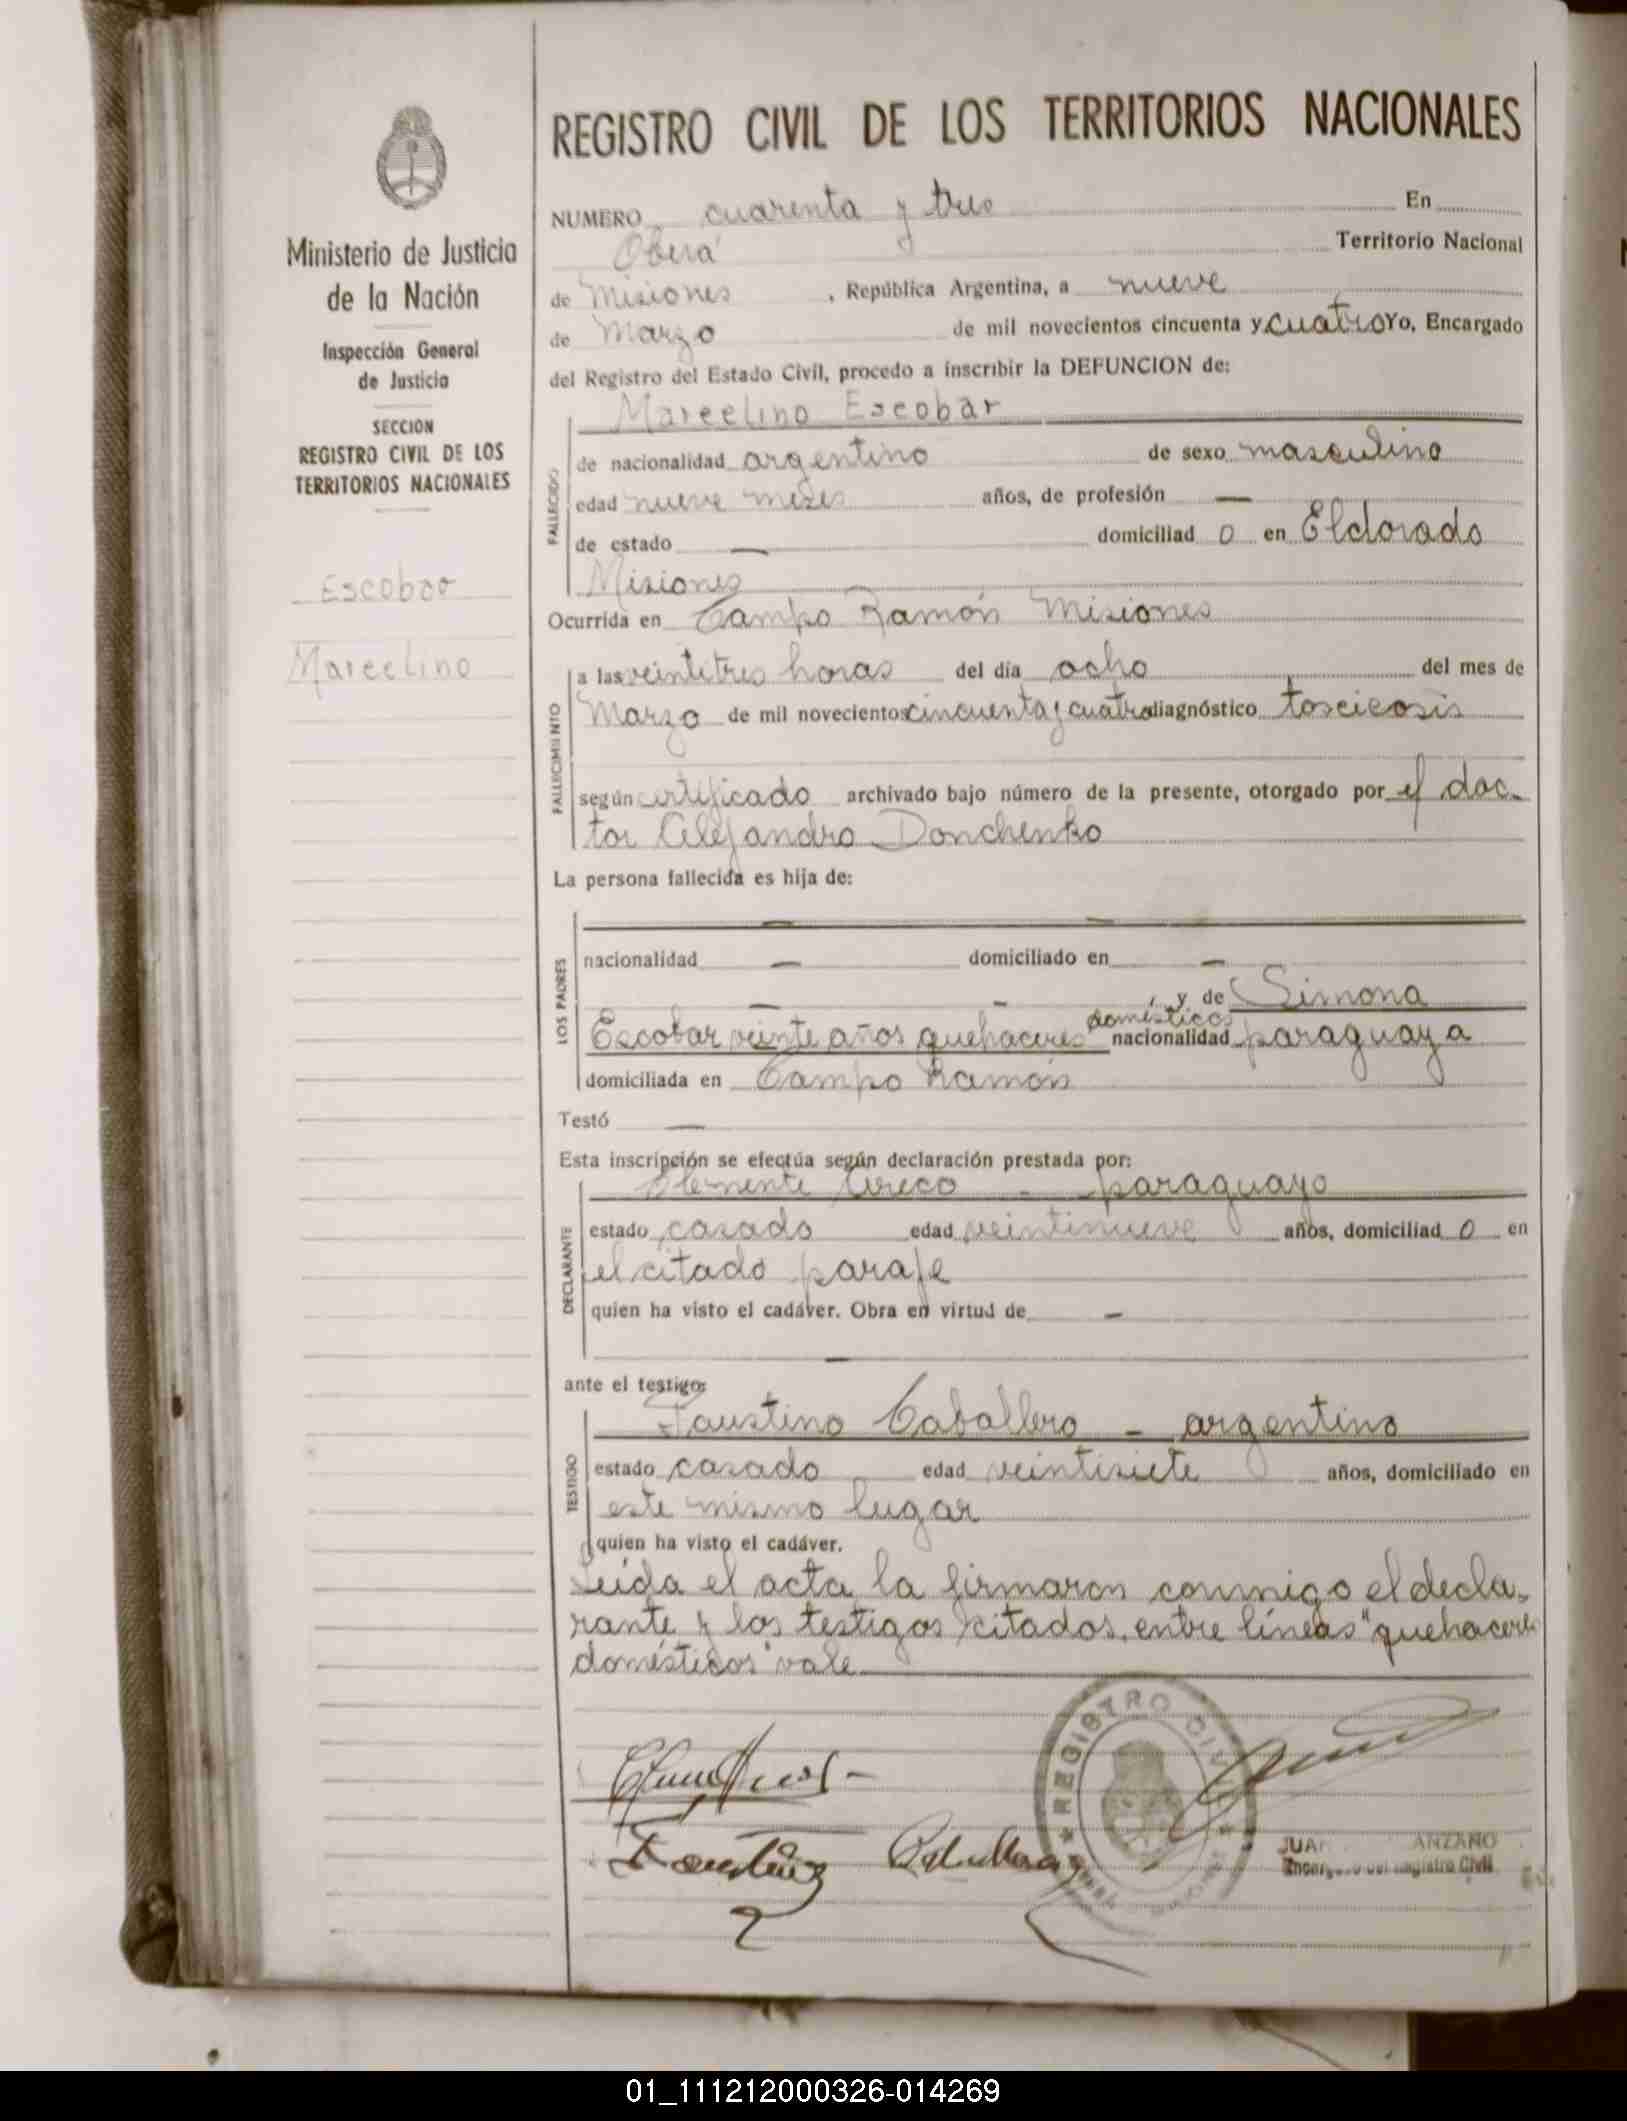 Ministerio de Justicia
de la Nación
Inspección General
de Justicia
SECCION
REGISTRO CIVIL DE LOS
TERRITORIOS NACIONALES
Escobar
Marcelino
REGISTRO CIVIL DE LOS TERRITORIOS NACIONALES
NUMERO cuarenta y tres En
Oberá Territorio Nacional
de Misiones , República Argentina, a nueve
de Marzo de mil novecientos cincuenta y cuatro Yo, Encargado
del Registro del Estado Civil, procedo a inscribir la DEFUNCION de:
Marcelino Escobar
FALLECIDO
de nacionalidad argentino de sexo masculino
edad nueve meses años, de profesión —
de estado — domiciliad o en Eldorado
Misiones
Ocurrida en Campo Ramón Misiones
FALLECIMIENTO
a las veintitres horas del día ocho del mes de
Marzo de mil novecientos cincuenta y cuatro diagnóstico toscicosis
según certificado archivado bajo número de la presente, otorgado por el doc-
tor Alejandro Donchenko
La persona fallecida es hija de:
— —
LOS PADRES
nacionalidad — domiciliado en —
— — , y de Simona
domésticos
Escobar veinte años quehaceres nacionalidad paraguaya
domiciliada en Campo Ramón
Testó —
Esta inscripción se efectúa según declaración prestada por:
- paraguayo
DECLARANTE
estado casado edad veintinueve años, domiciliad o en
el citado paraje
quien ha visto el cadáver. Obra en virtud de —
—
ante el testigo:
Faustino Caballero - argentino
TESTIGO
estado casado edad veintisiete años, domiciliado en
este mismo lugar
quien ha visto el cadáver.
Leída el acta la firmaron conmigo el decla-
rante y los testigos citados, entre líneas "quehaceres
domésticos" vale
REGISTRO CIVIL
Faustino Caballero
JUAN ANZANO
Encargado del Registro Civil
01_111212000326-014269